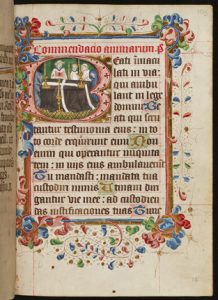 Commendacio animarum. Ps
Eati immacu
lati in via:
qui ambu
lant in lege
domini Be
ati qui scru
tantur testimonia eius: in to
to corde exquirunt eum Non
enim qui operantur iniquita
tem: in viis eius ambulaverunt
Tu mandasti: mandata tua
custodiri nimis Utinam diri
gantur vie mee: ad custodien
das iustificaciones tuas Tunc